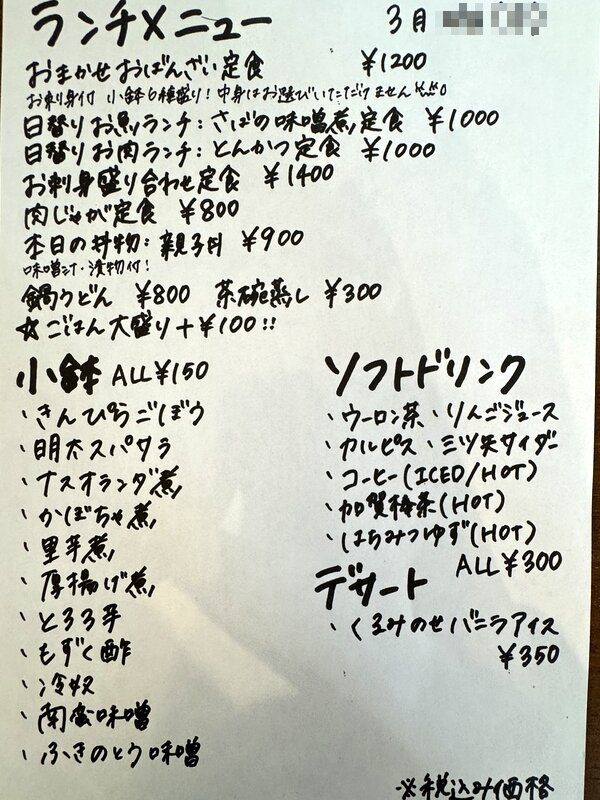 ランチメニュー 3月
おまかせおばんざい定食 ¥1200
お刺身付 小鉢6種盛り!中身はお選びいただけません
日替りお魚ランチ:さばの味噌煮定食 ¥1000
日替りお肉ランチ:とんかつ定食 ¥1000
お刺身盛り合わせ定食 ¥1400
肉じゃが定食 ¥800
本日の丼物:親子丼 ¥900
味噌汁・漬物付!
鍋うどん ¥800 茶碗蒸し ¥300
☆ごはん大盛り+¥100!!
小鉢 ALL¥150
・きんぴらごぼう
・明太スパサラ
・ナスオランダ煮
・かぼちゃ煮
・里芋煮
・厚揚げ煮
・とろろ芋
・もずく酢
・冷奴
・南蛮味噌
・ふきのとう味噌
ソフトドリンク
・ウーロン茶・りんごジュース
・カルピス・三ツ矢サイダー
・コーヒー(ICED/HOT)
・加賀棒茶(HOT)
・はちみつゆず(HOT)
ALL¥300
デザート
・くるみのせバニラアイス
¥350
※税込み価格